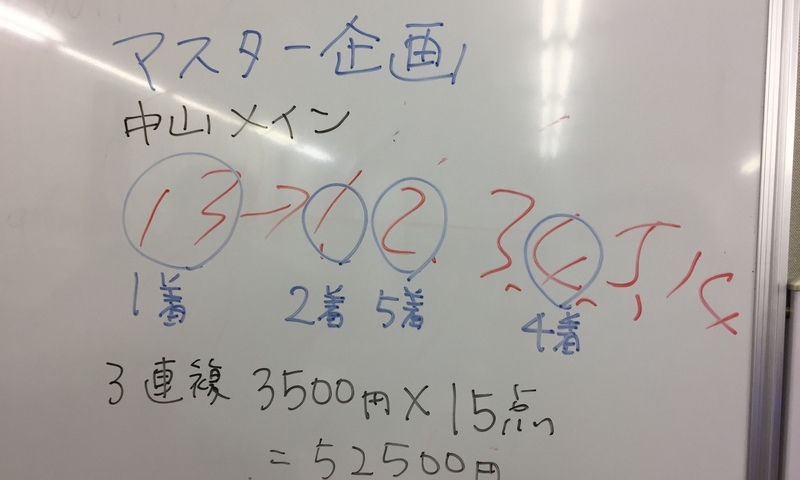 マスター企画
中山メイン
13→1、2 3、4、5、14
1着 2着 5着 4着
3連複 3500円×15点
=52500円